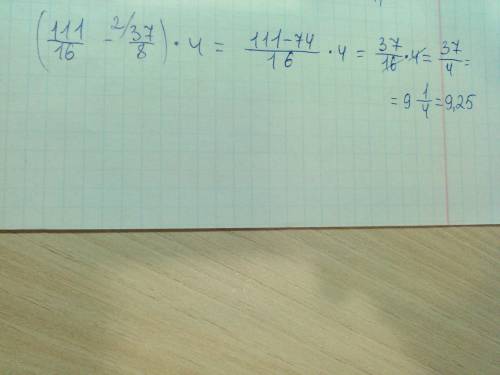 (111/16 - ²⁄37/8) · 4 = 111-74/16 · 4 = 37/16 · 4 = 37/4 =
= 9 1/4 = 9,25